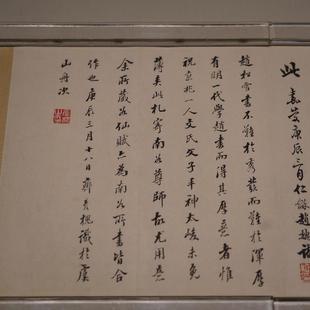 此
嘉慶庚辰三月仁趙
趙松雪書不難於秀發而難於渾厚
有明一代學趙書而得其厚意者惟
祝京兆一人文氏父子丰神太峻未免
薄矣此札寄南谷尊師故尤用意
余所藏仙賦亦為南谷所書皆合
作也庚辰三月十八日齊彥槐識於虞
山舟次